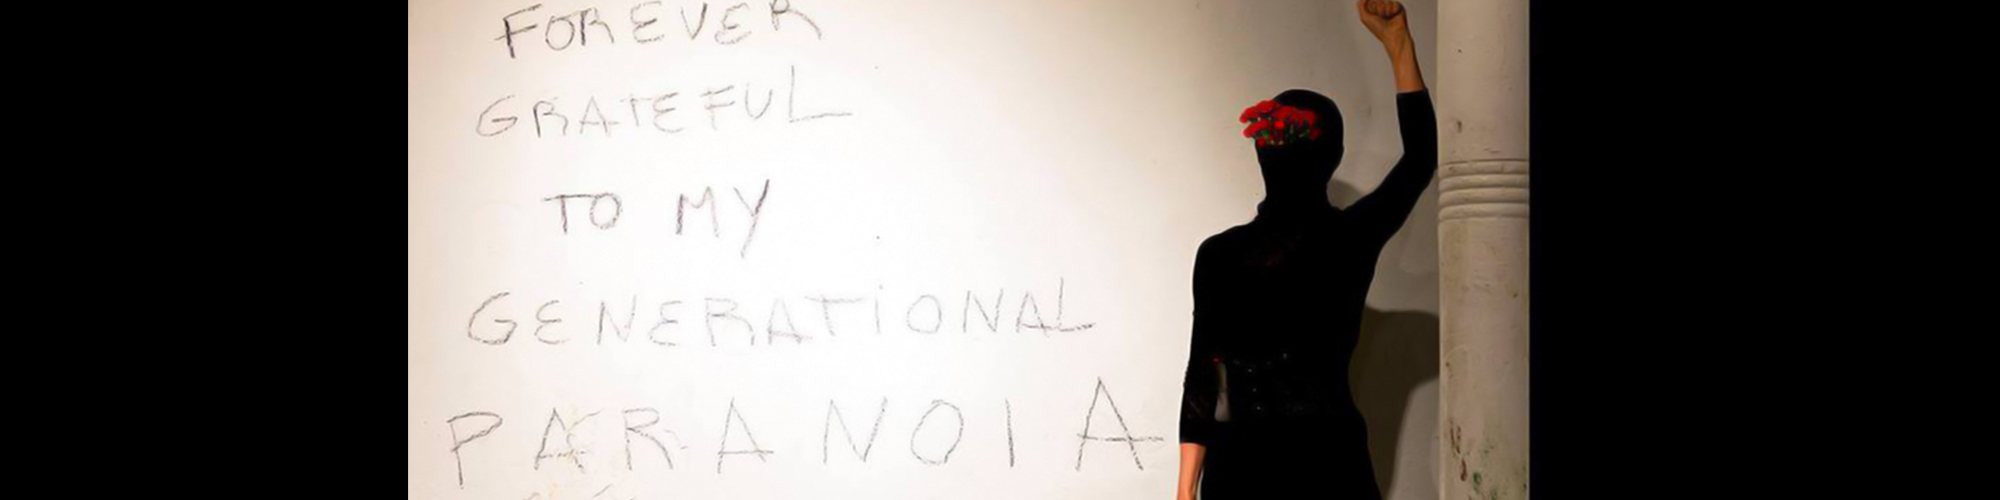 FOREVER
GRATEFUL
TO MY
GENERATIONAL
PARANOIA